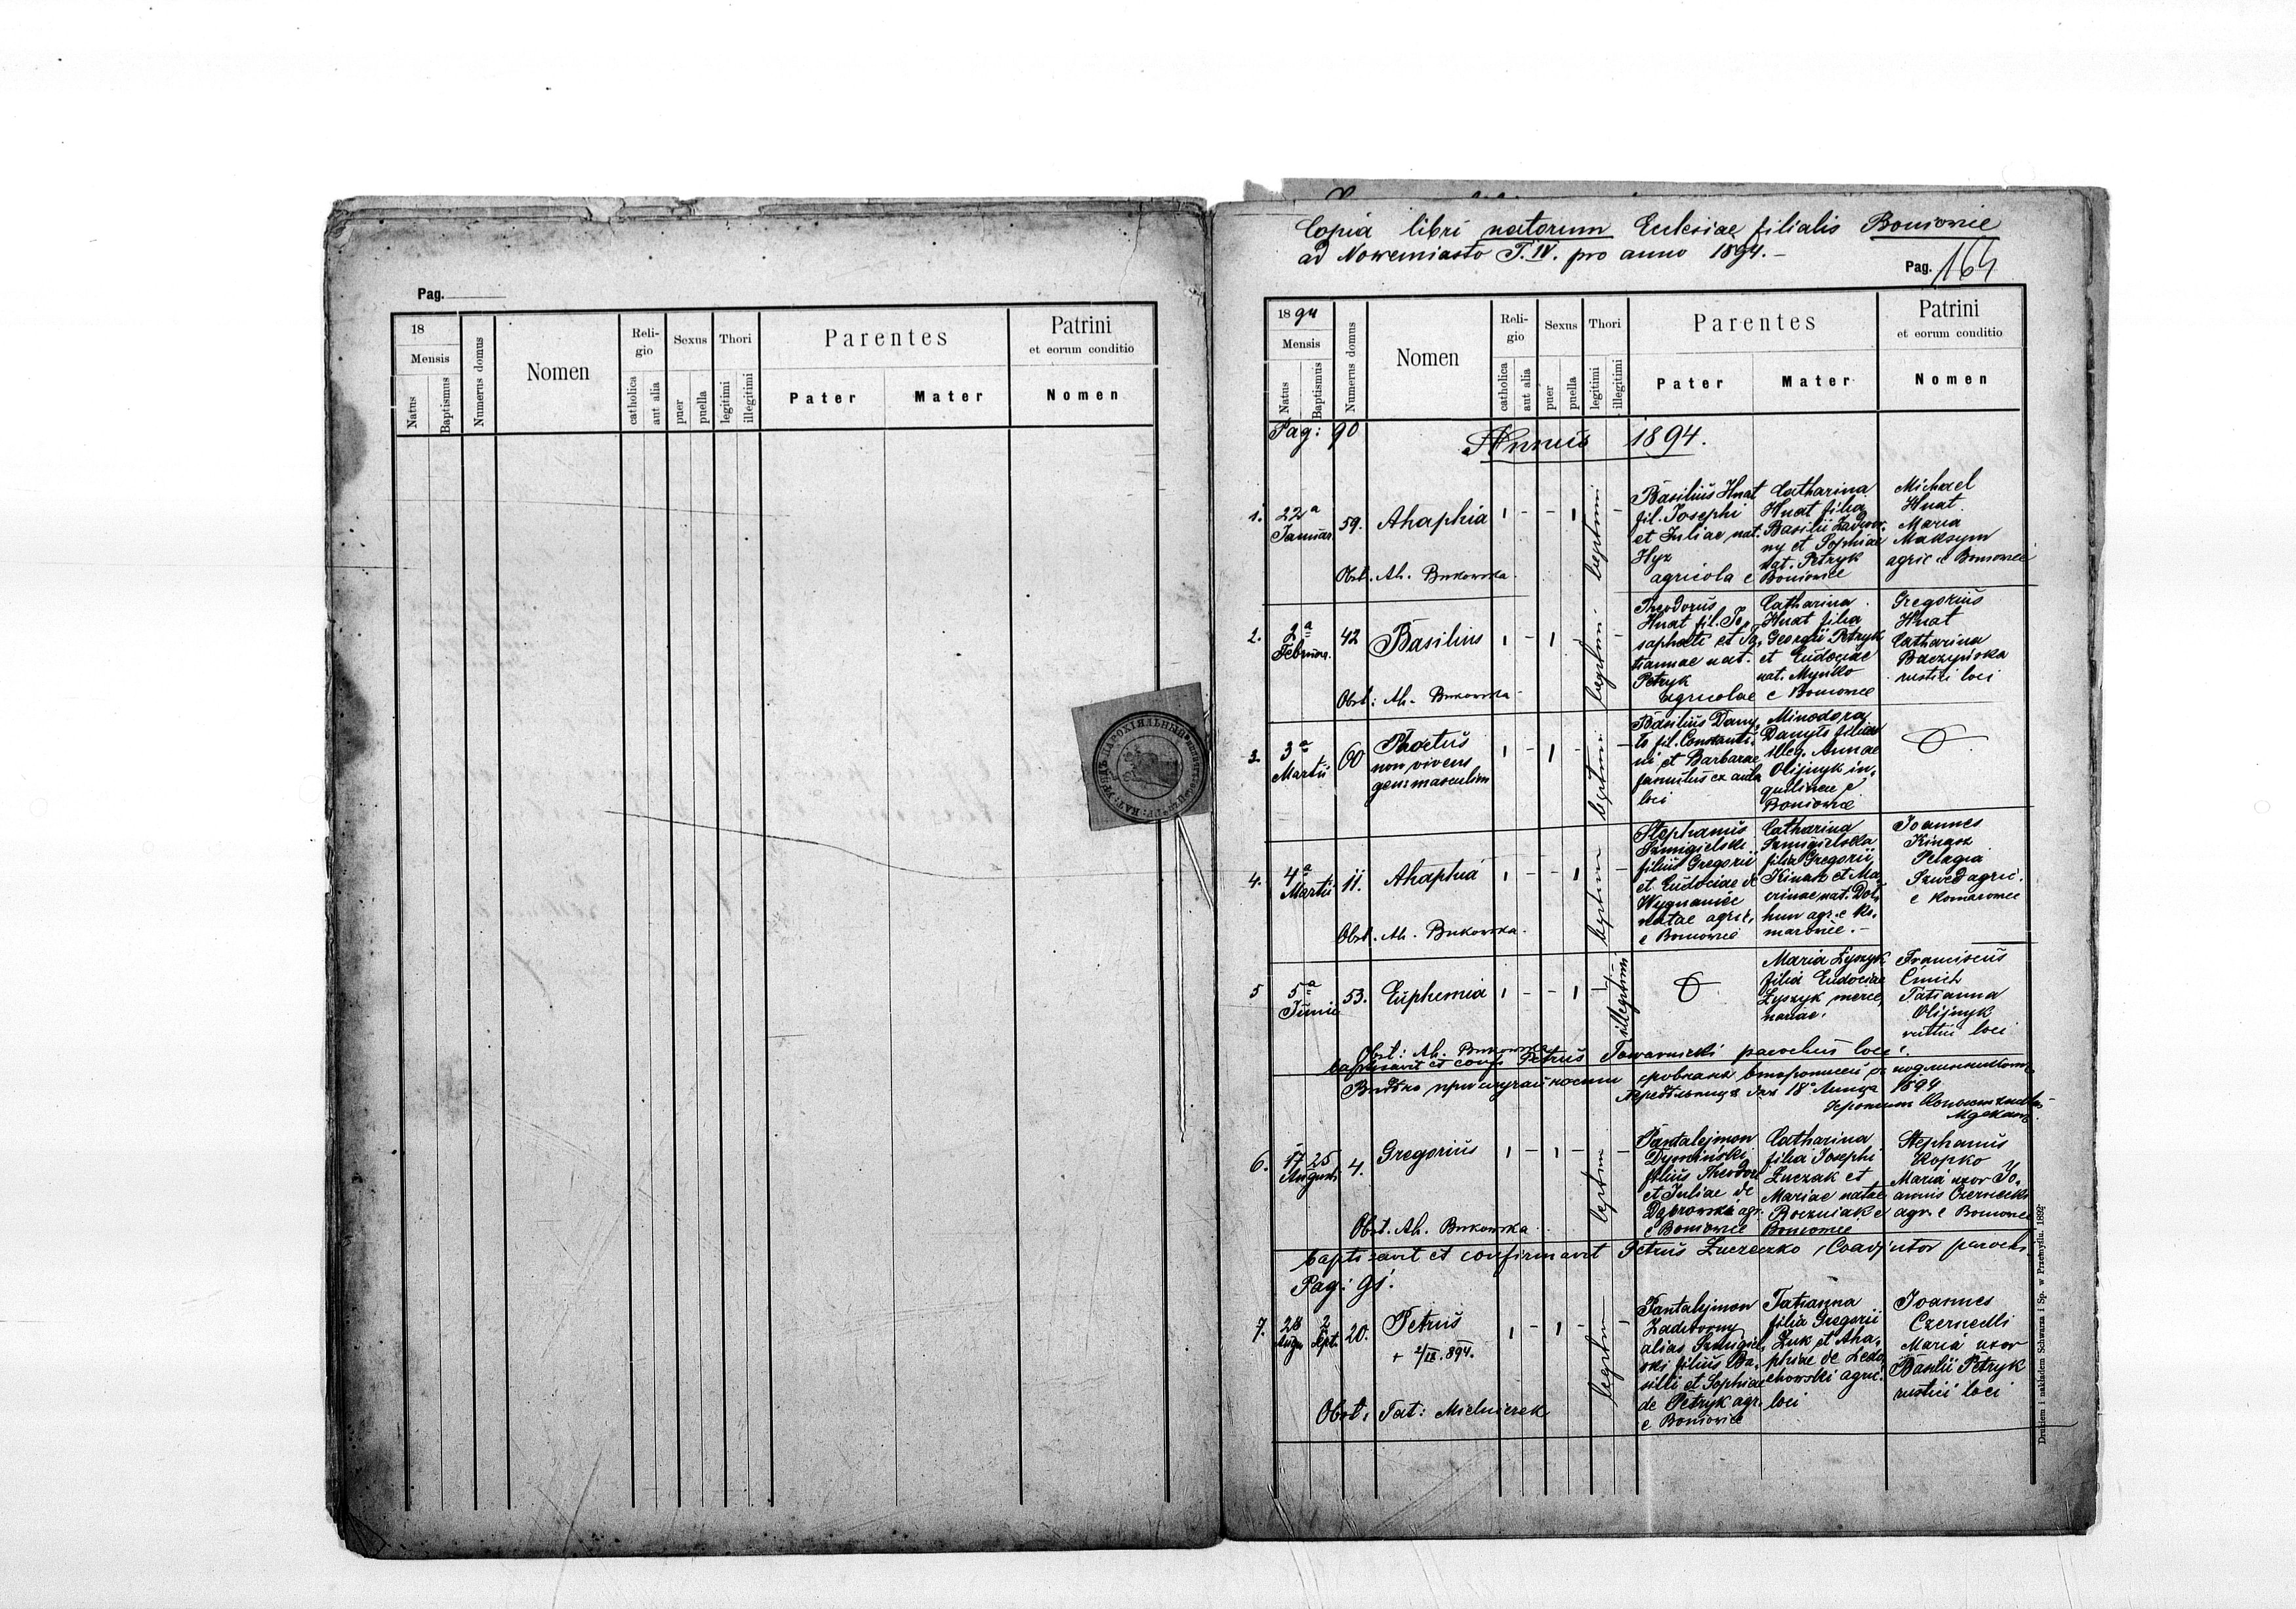 Pag.
18
Mensis
Natus
Baptismus
Numerus domus
Nomen
Religio
catholica
aut alia
Sexus
puer
puella
Thori
legitimi
illegitimi
Parentes
Pater
Mater
Patrini
et eorum conditio
Nomen
Copia libri natorum Ecclesiae filialis Boniowice
ad Nowemiasto T. IV. pro anno 1894.-
Pag. 164
1894
Mensis
Natus
Baptismus
Numerus domus
Nomen
Religio
catholica
aut alia
Sexus
puer
puella
Thori
legitimi
illegitimi
Parentes
Pater
Mater
Patrini
et eorum conditio
Nomen
Pag: 90
Annus 1894.
1. 22a Januar. 59. Ahaphia 1 - - 1 legitimi -
Basilius Hnat
fil. Josephi
et Juliae nat.
Hyz
agricola e
Catharina
Hnat filia
Basilii Zadwor-
ny et Sophiae
nat. Petryk
Boniowice
Michael
Hnat
Maria
Maksym
agric e Boniowice
Obst. Ah. Bukowska
2. 2a Februar. 42 Basilius 1 - 1 - legitimi -
Theodorus
Hnat fil. Jo-
saphati et Ta-
tiannae nat.
Petryk
agricolae
Catharina
Hnat filia
Georgii Petryk
et Eudociae
nat. Mynko
e Boniowice
Gregorius
Hnat
Catharina
Baczyńska
rustici loci
Obst: Ah. Bukowska
3. 3a Martii 60 Phoetus
non vivens
gen: masculini
1 - 1 - legitimi -
Basilius Dany-
to fil. Constanti-
ni et Barbarae
famulus ex aula
loci
Minodora
Danyto filia
illeg. Annae
Olijnyk in-
quilinae e
Boniowice
4. 4a Martii 11. Ahaphia 1 - - 1 legitimi -
Stephanus
Szmigielski
filius Gregorii
et Eudociae de
Wygnaniec
natae agric.
e Boniowice
Catharina
Szmigielska
filia Gregorii
Kinasz et Ma-
crinae nat. Dol-
hun agr. e Ko-
marowice.-
Joannes
Kinasz
Pelagia
Szwed agric.
e Komarowice
Obst. Ah. Bukowska.
5 5a Junii 53. Euphemia 1 - - 1 - illegitimi
Maria Łyszyk
filia Eudociae
Łyszyk merce-
nariae.
Franciscus
Ćmich
Tatianna
Olijnyk
rustici loci
Obst: Ah. Bukowska
baptisavit et conf. Petrus Towarnicki parochus loci.
18 1894
6. 17 25 Augusti 4. Gregorius 1 - 1 - legitimi -
Pantalejmon
Dymiński
filius Theodori
et Juliae de
Dąbrowska agr.
e Boniowice
Catharina
filia Josephi
Łuczak et
Mariae natae
Roczniak e
Boniowice
Stephanus
Kopko
Maria uxor Jo-
annis Czernecki
agr. e Boniowice
Obst. Ah. Bukowska
baptisavit et confirmavit Petrus Zuczeczko Coadjutor parochi
Pag: 91.
7. 28 Aug. 2 Sept. 20. Petrus
+ 2/IX. 894.
1 - 1 - legitimi -
Pantalejmon
Zadworny
alias Szmigiel-
ski filius Ba-
silii et Sophiae
de Petryk agr.
e Boniowice
Tatianna
filia Gregorii
Żuk et Aha-
phiae de Ledo-
chowski agric.
loci
Joannes
Czernecki
Maria uxor
Basilii Petryk
rustici loci
Obst: Tat: Mielniczek
Drukiem i nakładem Schwarza i Sp. w Przemyślu. 1892